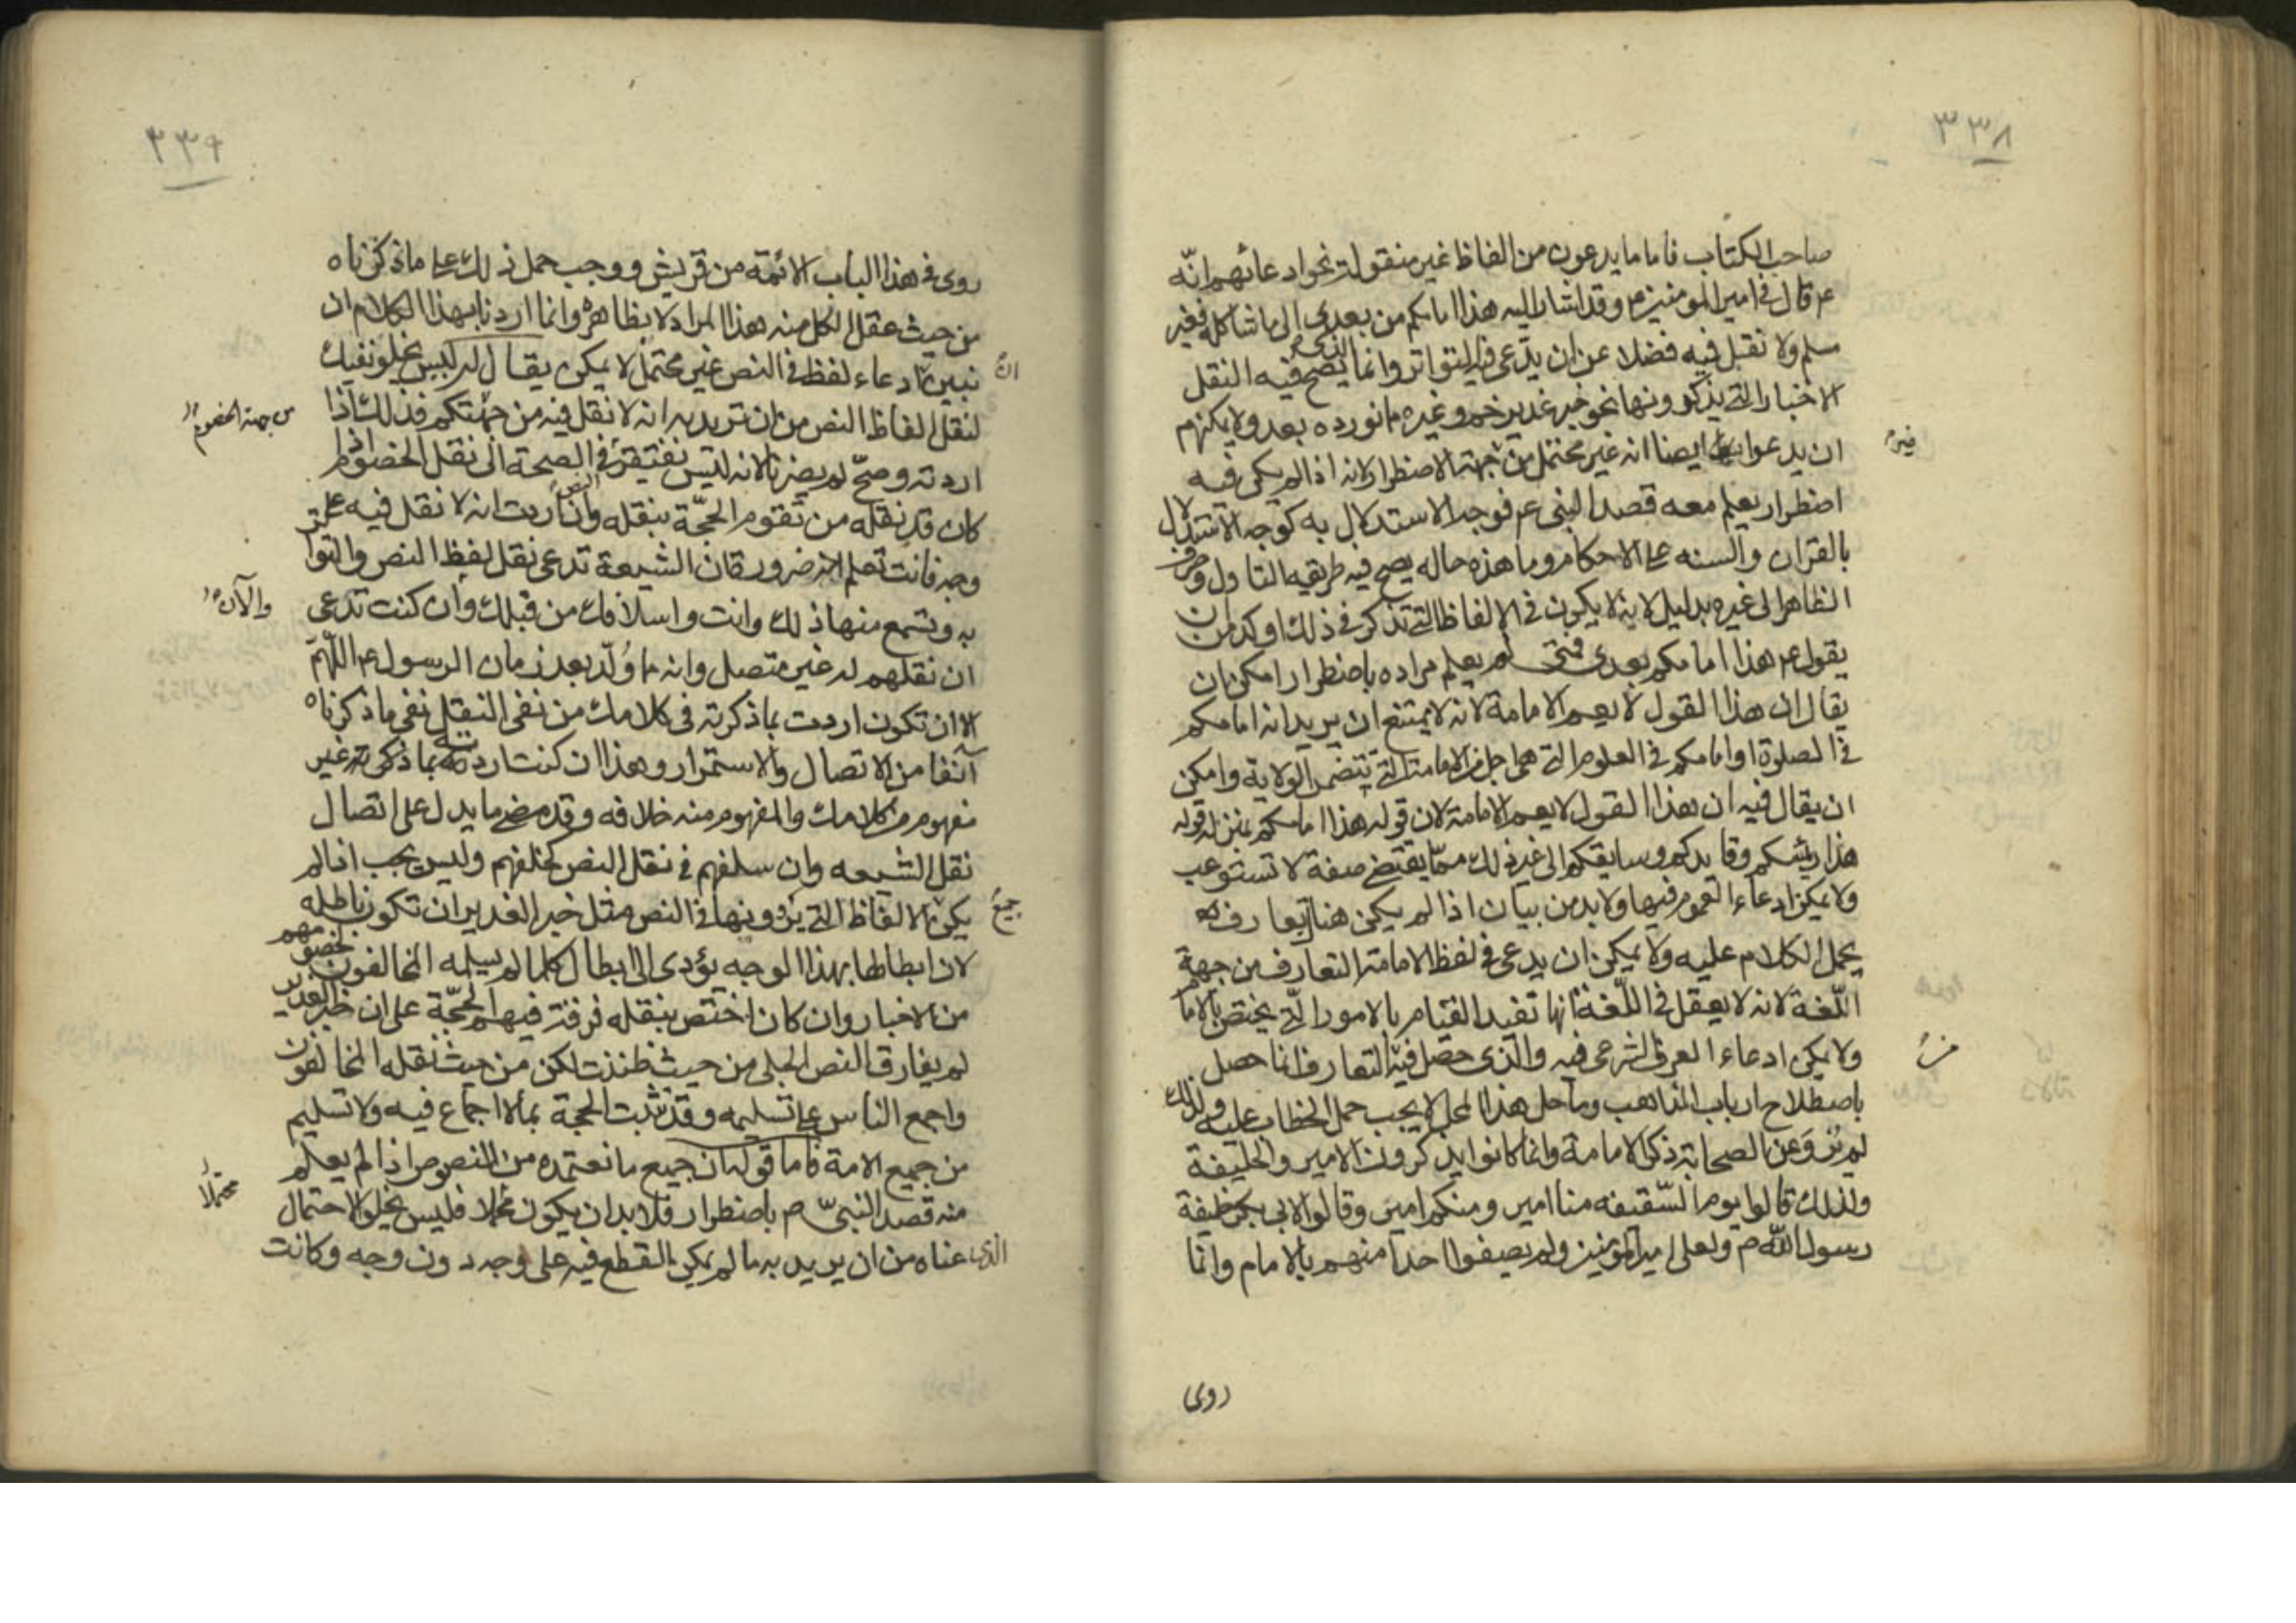 ٣٣٨
صاحب الكتاب فاما ما يدعون من الفاظ غير منقولة نحو ادعائهم انّه
ع قال في امير المومنين ع وقد اشار اليه هذا امامكم من بعدى الى ما شاكله فغير
مسلم ولا نقبل فيه فضلا عن ان يدّعى فيه التواتر وانما الذى يصح فيه النقل
الاخبار التى يذكرونها نحو خبر غدير خم وغيره مما نورده بعد ولا يمكنهم
ان يدعوا فيها ايضا انه غير محتمل من جهة الاضطرار لانه اذا لم يكن فيه
فيه
اضطرار يعلم معه قصد النبى ع فوجه الاستدلال به كوجه الاستدلال
بالقران والسنه على الاحكام وما هذه حاله يصح فيه طريقه التاول وصرف
الظاهر الى غيره بدليل لانه لا يكون في الالفاظ التى تذكر في ذلك اوكد من ان
يقول ع هذا امامكم بعدى فمتى لم يعلم مراده باضطرار امكن ان
يقال ان هذا القول لا يعم الامامة لانه لا يمتنع ان يريد انه امامكم
في الصلوة او امامكم في العلوم التى هى اجل من الامامة التى تتضمن الولاية وامكن
ان يقال فيه ان هذا القول لا يعم الامامة لان قوله هذا امامكم بمنزلة قوله
هذا رئيسكم وقايدكم وسايقكم الى غير ذلك ممّا يقتضى صفة لا تستوعب
ولا يمكن ادعاء العموم فيها ولا بد من بيان اذا لم يكن هناك تعارف
يحمل الكلام عليه ولا يمكن ان يدعى في لفظ الامامة التعارف من جهة
اللّغة لانه لا يعقل في اللّغة انها تفيد القيام بالامور الّتى يختص بالاما
ولا يمكن ادعاء العرف الشرعى فيه والّذى حصل فيه التعارف انما حصل
من
باصطلاح ارباب المذاهب وما حل هذا المحل لا يجب حمل الخطاب عليه ولذلك
لم يُروَ عن الصحابة ذكر الامامة وانما كانوا يذكرون الامير والخليفة
ولذلك قالوا يوم السّقيفه منا امير ومنكم امير وقالوا لابى بكر خليفة
رسول الله ص ولعلى امير المؤمنين ولم يصفوا احدا منهم بالامام وانما
روى
٣٣٩
روى في هذا الباب الائمة من قريش ووجب حمل ذلك على ما ذكرناه
من حيث عقل الكل منه هذا المراد لا بظاهره وانما اردنا بهذا الكلام ان
نبين انّ ادعاء لفظ في النص غير محتمل لا يمكن يقال له ليس يخلو نفيك
انّ
لنقل الفاظ النص من ان تريد به انه لا نقل فيه من جهتكم فذلك اذا
من جهة الخصوم
اردته وصحّ لم يضرنا لانه ليس نفتقر في الصحة الى نقل الخصوم اذا
كان قد نقله من تقوم الحجّة بنقله وان اردت انه لا نقل فيه على
وجه فانت تعلم ضرورة ان الشيعة تدعى نقل لفظ النص والتوا
به وتسمع منها ذلك وانت واسلافك من قبلك وان كنت تدعى
والآن
ان نقلهم له غير متصل وانه مما وُلّد بعد زمان الرسول ع اللّهمّ
الا ان تكون اردت بما ذكرته في كلامك من نفى النقل نفى ما ذكرناه
آنفا من الاتصال والاستمرار وهذا ان كنت اردته بما ذكرته غير
مفهوم من كلامك والمفهوم منه خلافه وقد مضى ما يدل على اتصال
نقل الشيعه وان سلفهم في نقل النص كخلفهم وليس يجب اذا لم
يكن الالفاظ التى يروونها في النص مثل خبر الغدير ان تكون باطله
جميع
لان ابطالها بهذا الوجه يؤدى الى ابطال كلما لم يسلمه المخالفون خصومهم
من الاخبار وان كان اختص بنقله فرقة فيهم الحجّة على ان خبر الغدير
لم يفارق النص الجلى من حيث ظننت لكن من حيث نقله المخالفون
واجمع الناس على تسليمه وقد تثبت الحجة بما لا اجماع فيه ولا تسليم
من جميع الامة فاما قوله ان جميع ما نعتمده من النصوص اذا لم يعلم
منه قصد النبىّ ص باضطرار فلا بد ان يكون محتملا فليس يخلو الاحتمال
محتملا
الذى عناه من ان يريد به ما لم يكن القطع فيه على وجه دون وجه وكانت